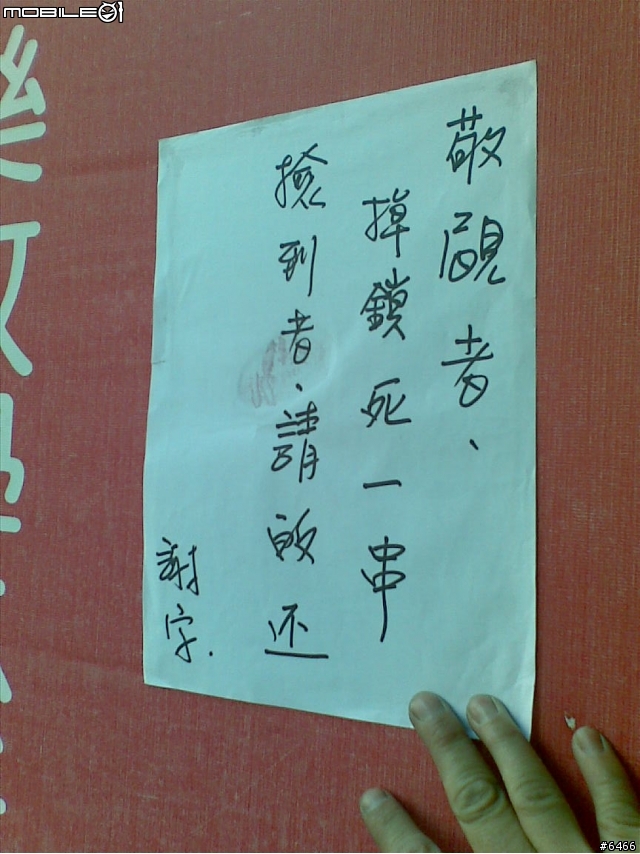 MOBILE01
敬者、
掉鎖死一串
撿到者、請敀还
謝字.
#6466